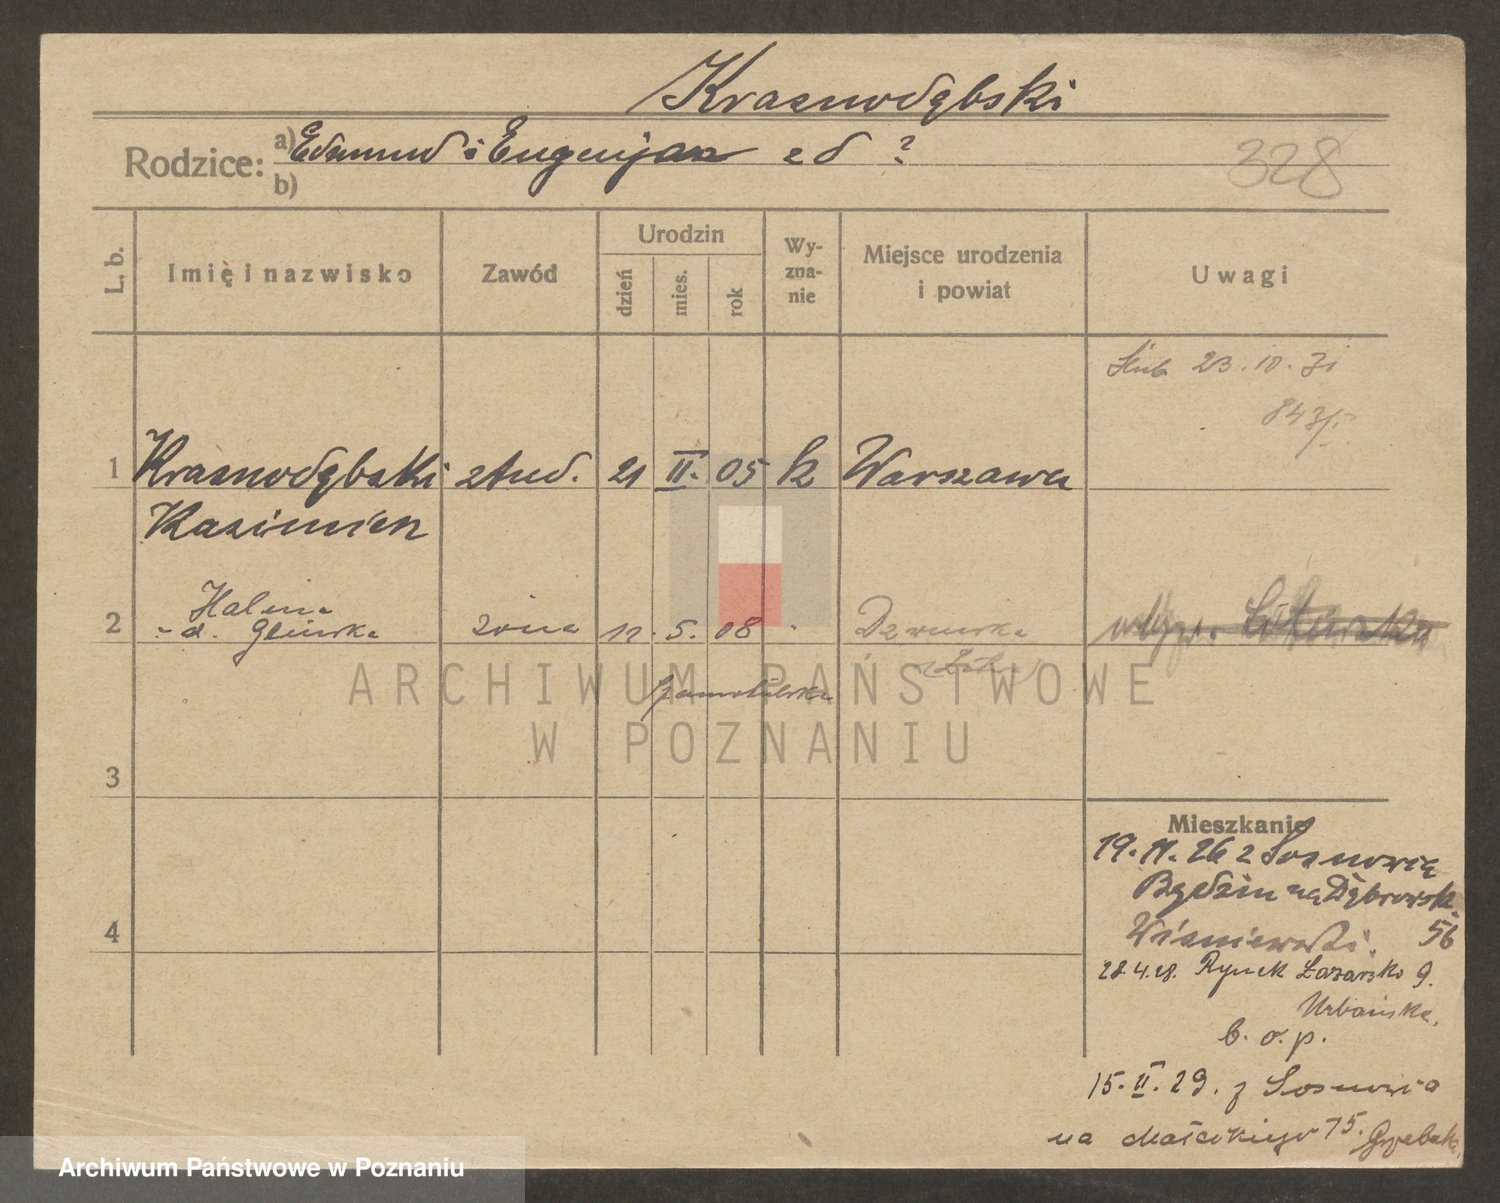 Krasnodębski
Rodzice: a) Edmund i Eugenja z d ?
b)
328
L. b.
Imię i nazwisko
Zawód
Urodzin
dzień
mies.
rok
Wy-
zna-
nie
Miejsce urodzenia
i powiat
Uwagi
Ślub 23.10.31
843/I
1 Krasnodębski stud. 21 II. 05 k Warszawa
Kazimierz
Halina
2 - d. Glińska żona 12. 5. 08 "
3
4
Mieszkanie
19.11.26 z Sosnowca
Będzin na Dąbrowsk.
Wiśniewski. 56
28.4.28. Rynek Łazarski 9.
Urbańska.
b. o. p.
15.II.29. z Sosnowca
na Małeckiego 15.
ARCHIWUM PAŃSTWOWE
W POZNANIU
Archiwum Państwowe w Poznaniu